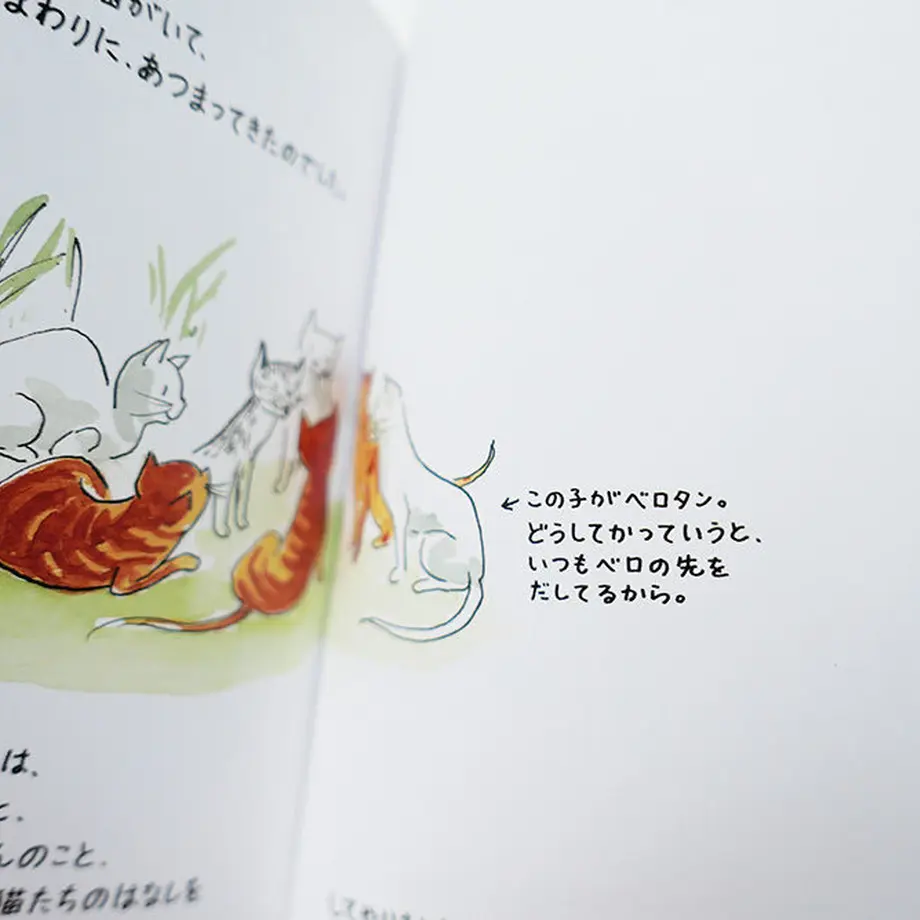 がいて、
まわりに、あつまってきたのでした。
この子がベロタン。
どうしてかっていうと、
いつもベロの先を
だしてるから。
は、
と、
んのこと、
猫たちのはなしを